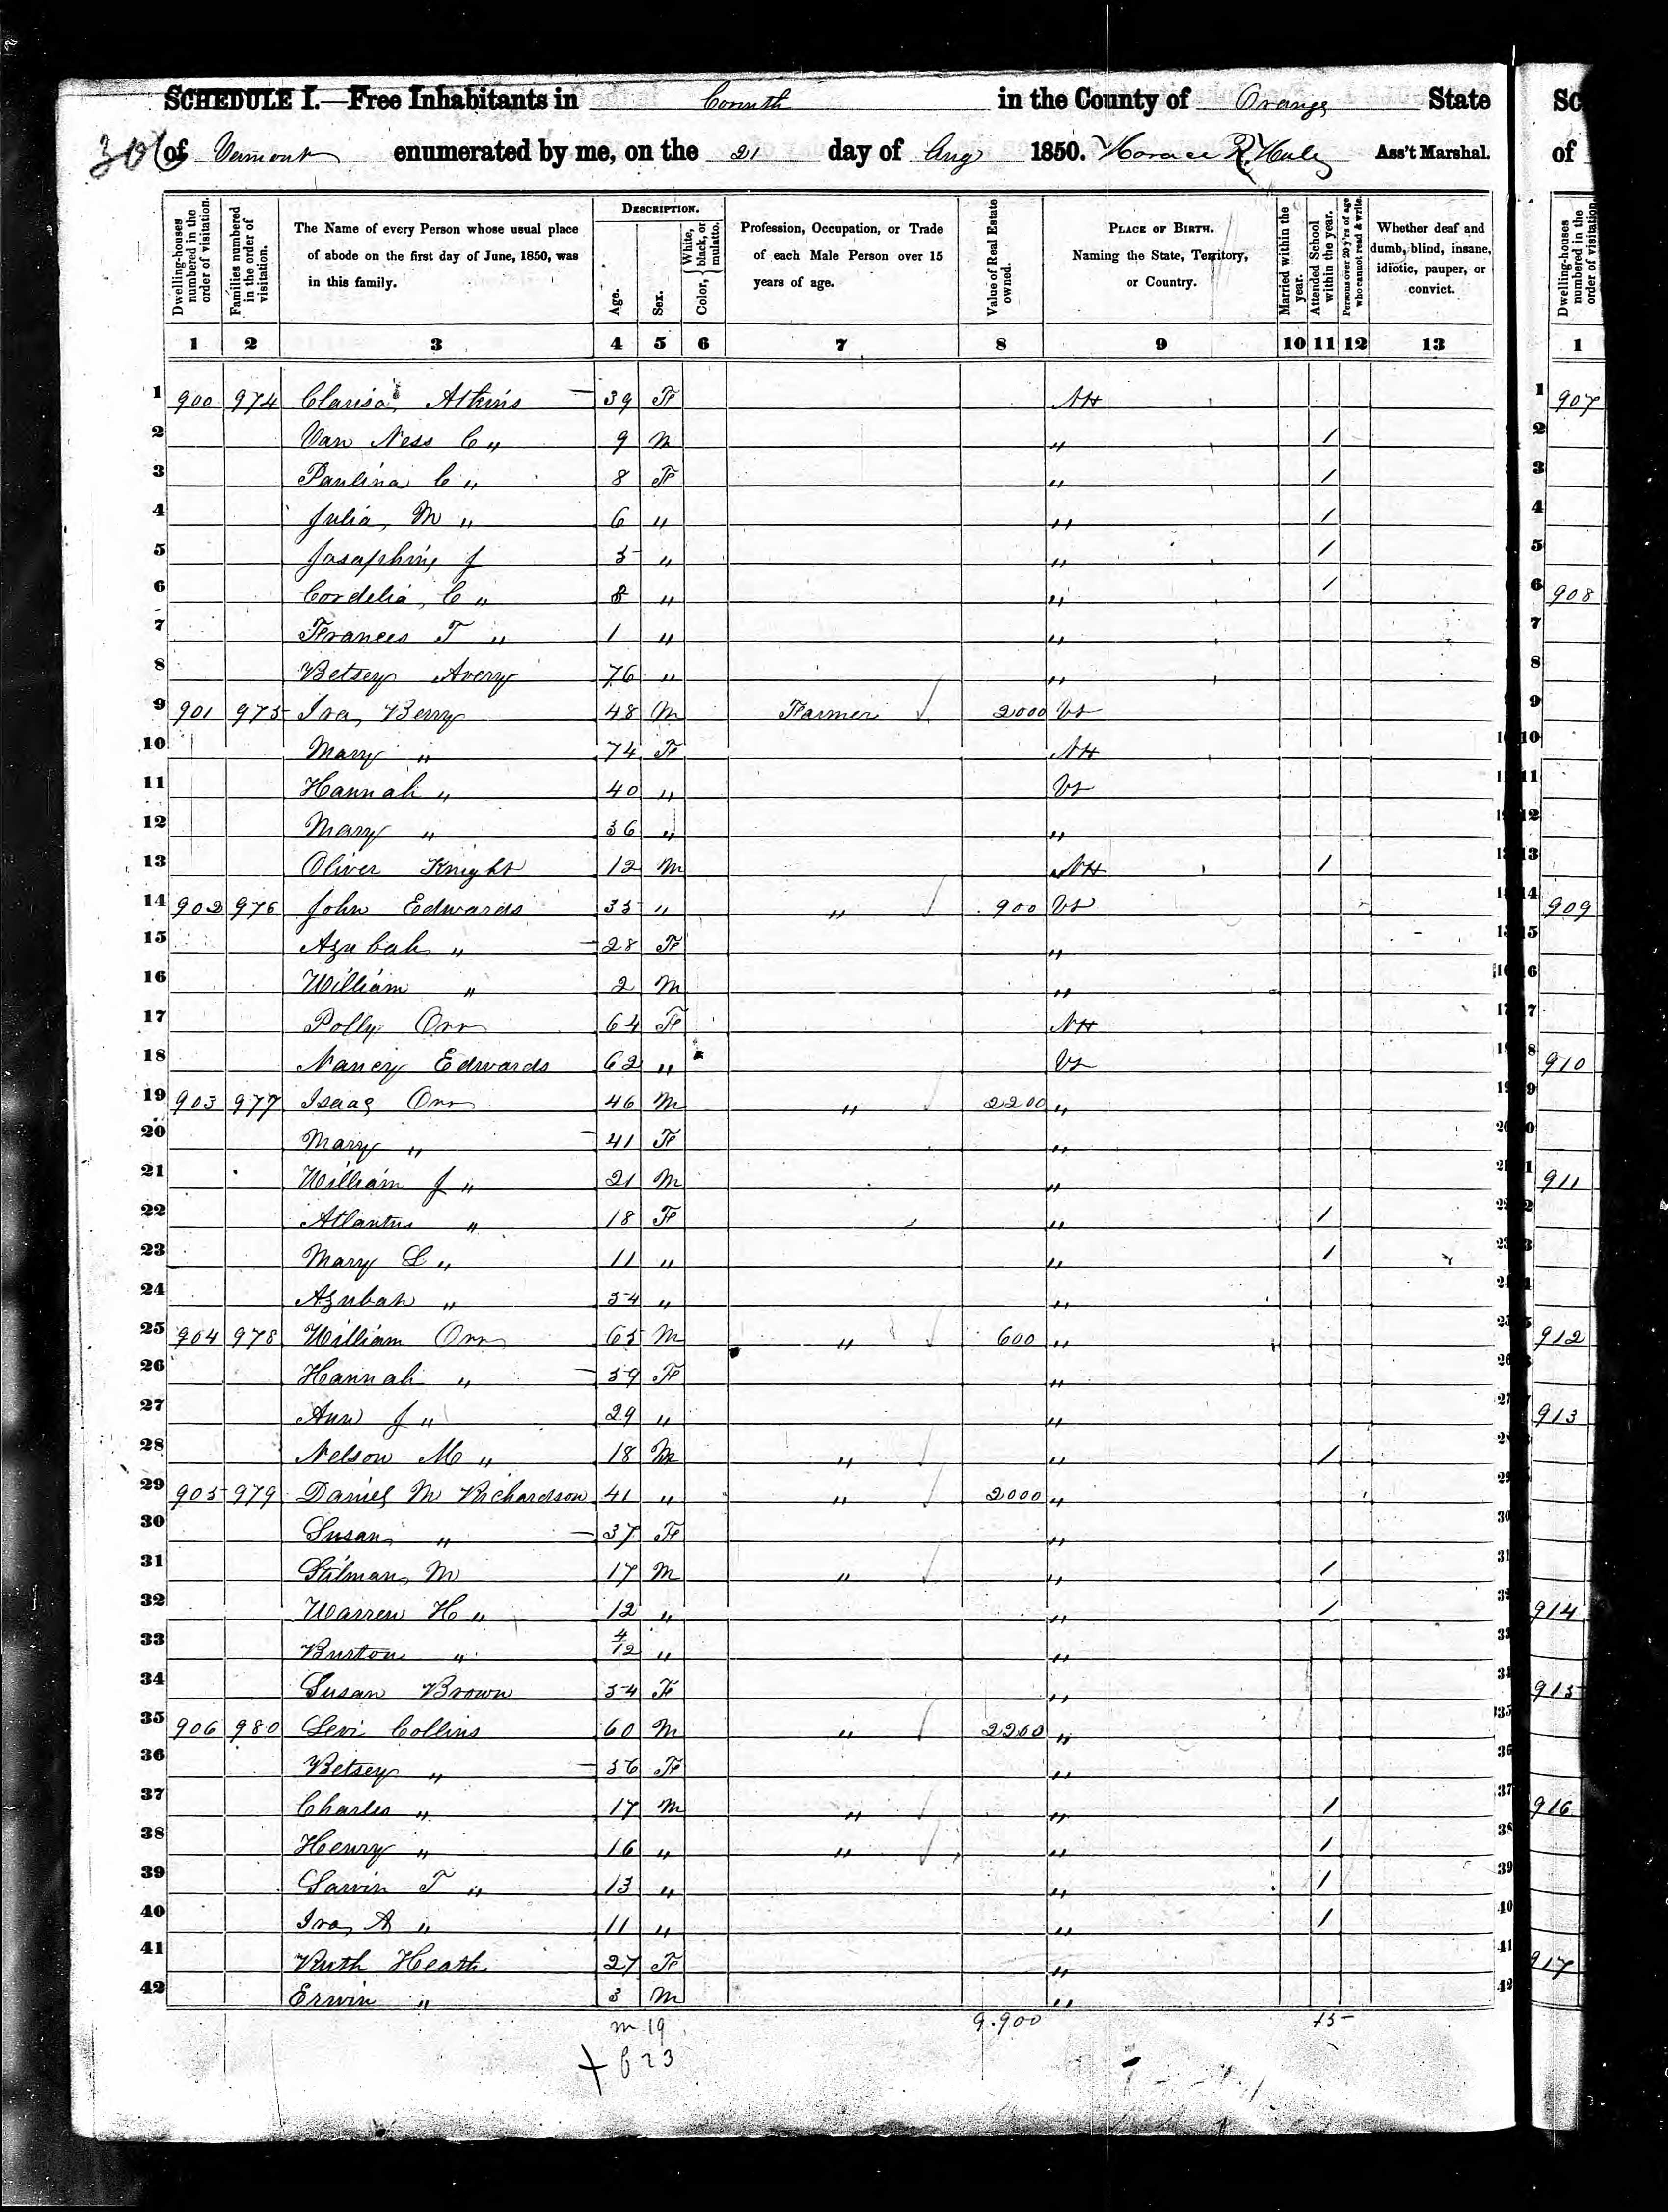 SCHEDULE I.—Free Inhabitants in Corinth in the County of Orange State
306 of Vermont enumerated by me, on the 21 day of Aug 1850. Horace R. Ass't Marshal.
Dwelling-houses numbered in the order of visitation. Families numbered in the order of visitation. The Name of every Person whose usual place of abode on the first day of June, 1850, was in this family. DESCRIPTION. Age. Sex. Color, { White, black, or mulatto. Profession, Occupation, or Trade of each Male Person over 15 years of age. Value of Real Estate owned. PLACE OF BIRTH. Naming the State, Territory, or Country. Married within the year. Attended School within the year. Persons over 20 y'rs of age who cannot read & write. Whether deaf and dumb, blind, insane, idiotic, pauper, or convict.
1 2 3 4 5 6 7 8 9 10 11 12 13
1 900 974 Clarisa Atkins 39 F NH
2 Van Ness C " 9 M " /
3 Paulina C " 8 F " /
4 Julia, M " 6 " " /
5 Josephine J 5 " " /
6 Cordelia, C " " " /
7 Frances T " 1 " "
8 Betsey Avery 76 " "
9 901 975 Ira, Berry 48 M Farmer 2000 Vt
10 Mary " 74 F NH
11 Hannah " 40 " Vt
12 Mary " 36 " "
13 Oliver Knight 12 M NH /
14 902 976 John Edwards 35 " " 900 Vt
15 Azubah " 28 F "
16 William " 2 M "
17 Polly Orr 64 F NH
18 Nancy Edwards 62 " Vt
19 903 977 Isaac Orr 46 M " 2200 "
20 Mary " 41 F "
21 William J " 21 M "
22 Atlantus " 18 F " /
23 Mary L " 11 " " /
24 Azubah " 54 " "
25 904 978 William Orr 65 M " 600 "
26 Hannah " 59 F "
27 Ann J " 29 " "
28 Nelson M " 18 M " " /
29 905 979 Daniel M Richardson 41 " " 2000 "
30 Susan, " 37 F "
31 Stilman, M 17 M " " /
32 Warren H " 12 " " /
33 Burton " 4/12 " "
34 Susan Brown 54 F "
35 906 980 Levi Collins 60 M " 2200 "
36 Betsey " 56 F "
37 Charles " 17 M " " /
38 Henry " 16 " " " /
39 Larvin T " 13 " " /
40 Ira, A " 11 " " /
41 Ruth Heath 27 F "
42 Erwin " 3 M "
m 19 9.900 15
f 23
SC
of
Dwelling-houses numbered in the order of visitation.
1
907
908
909
910
911
912
913
914
915
916
917